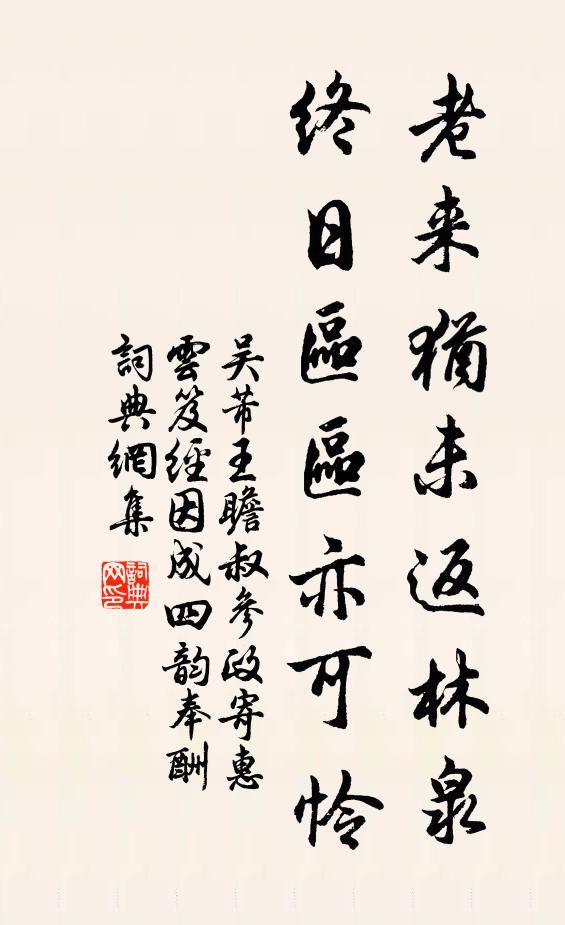 老来猶未返林泉
終日區區亦可怜
吴芾王瞻叔參政寄惠
雲笈經因成四韵奉酬
詞典網集
詞典网印